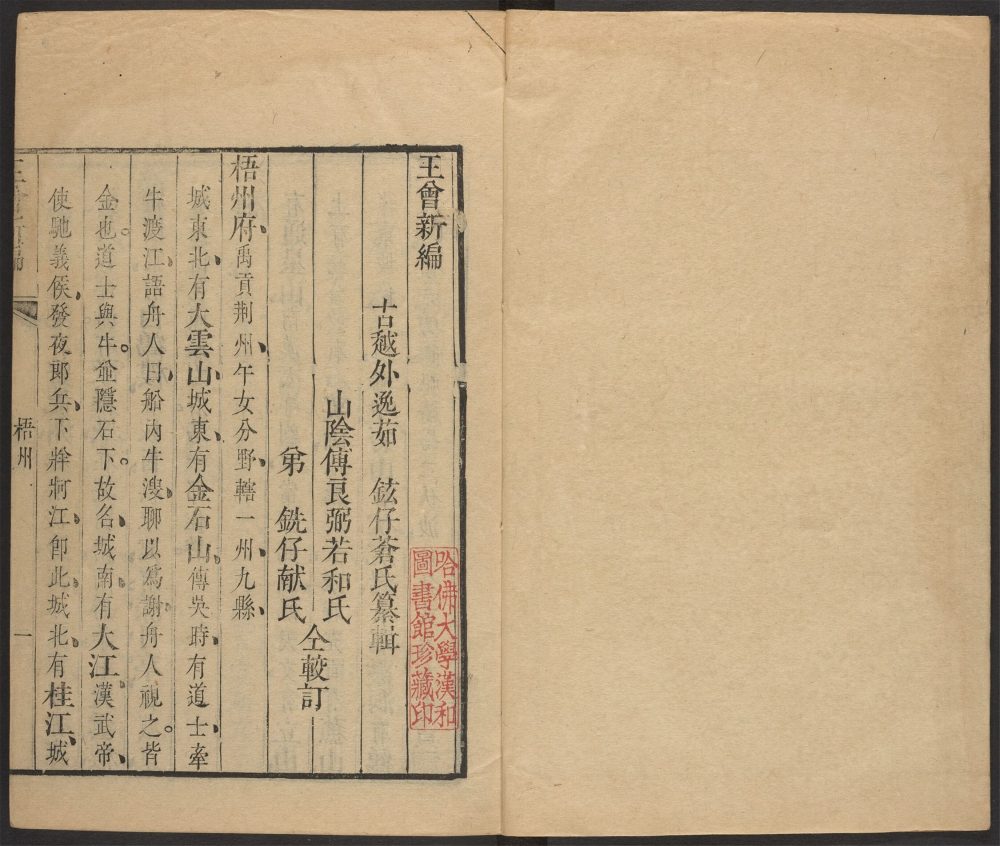 王曾新編
古越外逸茹 鉉仔蒼氏纂輯
山陰傅良弼若和氏
弟 銑仔献氏
仝較訂
梧州府禹貢荆州午女分野轄一州九縣
城東北有大雲山城東有金石山傳吳時有道士牽
牛渡江語舟人曰船內牛溲聊以爲謝舟人視之皆
金也道士與牛並隱石下故名城南有大江漢武帝
使馳義侯發夜郎兵下牂牁江即此城北有桂江城
梧州
一
哈佛大學漢和
圖書館珍藏印